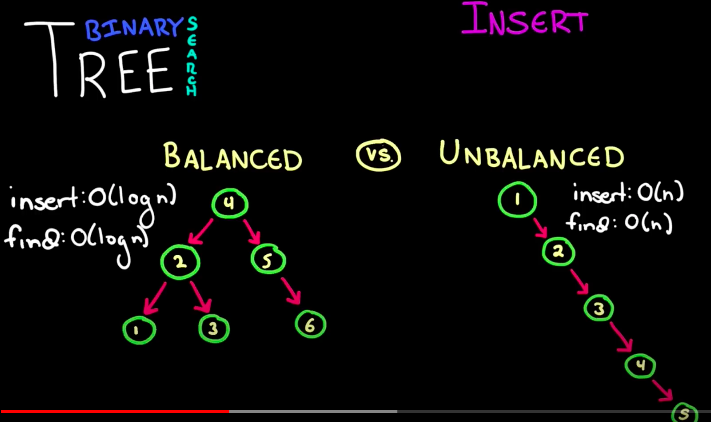 BINARY
SEARCH
TREE
INSERT
BALANCED vs. UNBALANCED
insert: O(log n)
find: O(log n)
4
2 5
1 3 6
insert: O(n)
find: O(n)
1
2
3
4
5